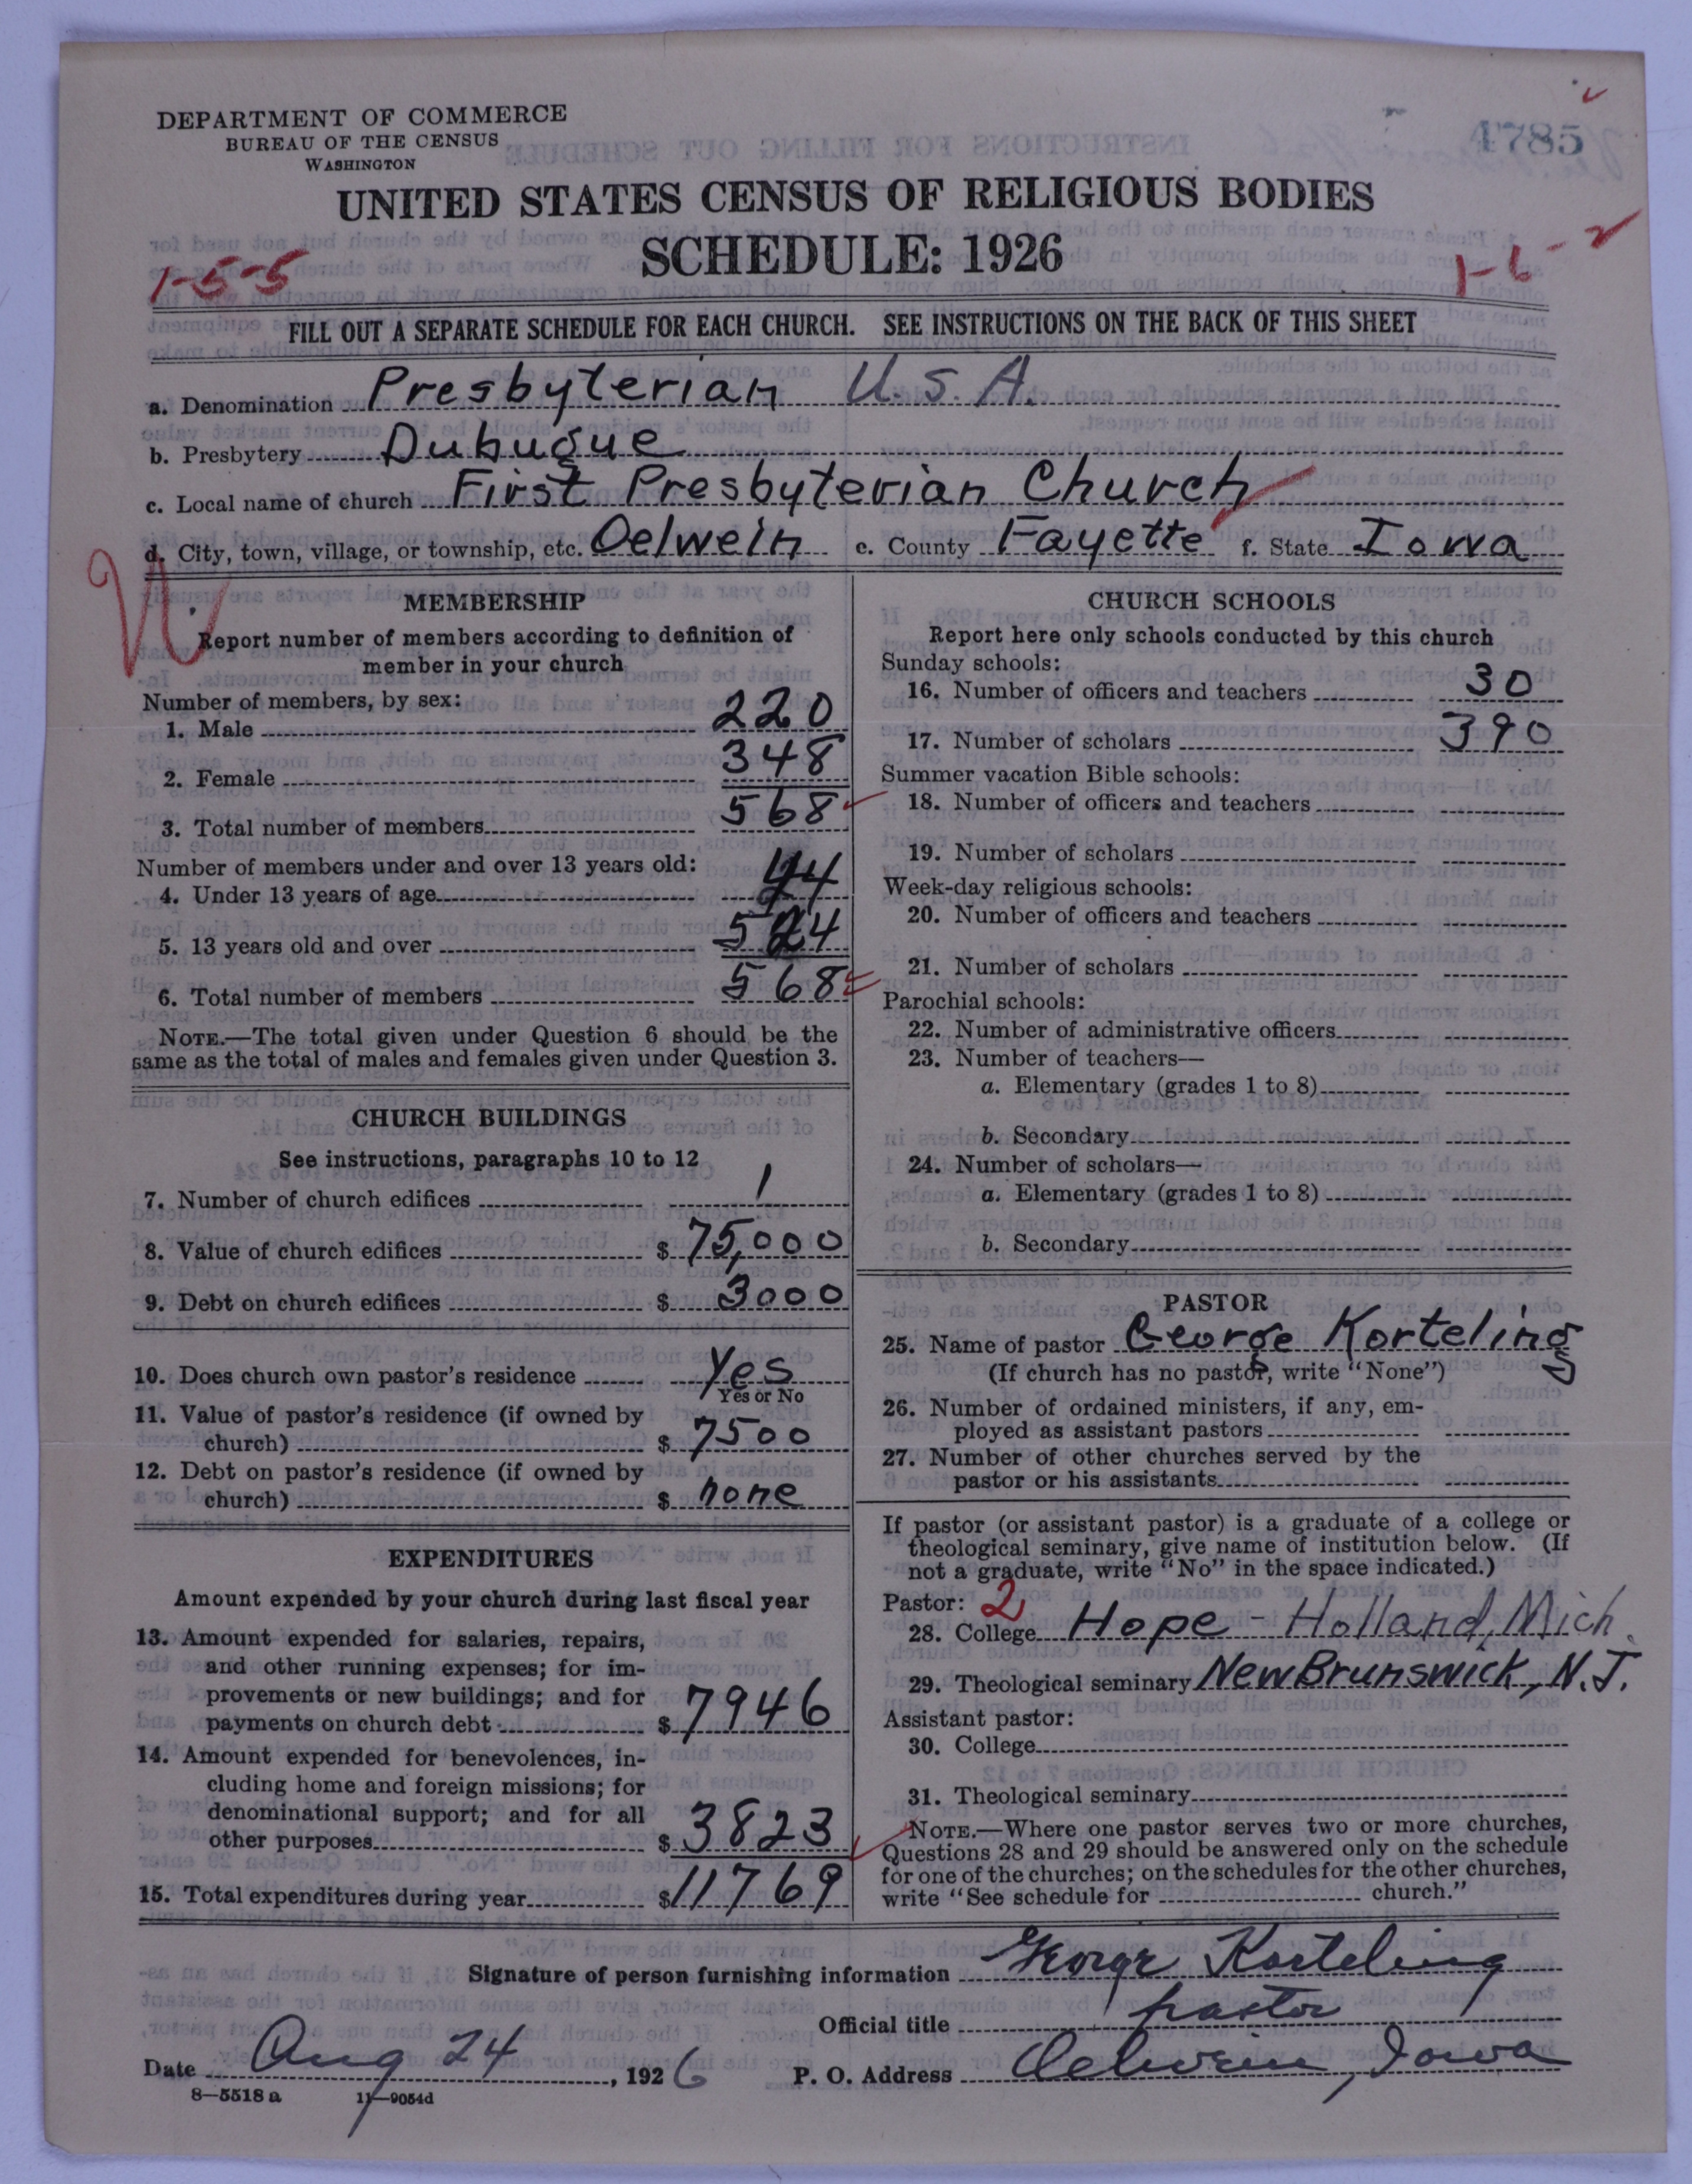 DEPARTMENT OF COMMERCE
BUREAU OF THE CENSUS
WASHINGTON
4785
UNITED STATES CENSUS OF RELIGIOUS BODIES
SCHEDULE: 1926
1-5-5
FILL OUT A SEPARATE SCHEDULE FOR EACH CHURCH. SEE INSTRUCTIONS ON THE BACK OF THIS SHEET
a. Denomination Presbyterian U.S.A.
b. Presbytery Dubuque
c. Local name of church First Presbyterian Church
d. City, town, village, or township, etc. Oelwein e. County Fayette f. State Iowa
MEMBERSHIP
Report number of members according to definition of
member in your church
Number of members, by sex:
1. Male 220
2. Female 348
3. Total number of members 568
Number of members under and over 13 years old:
4. Under 13 years of age 44
5. 13 years old and over 524
6. Total number of members 568
NOTE.—The total given under Question 6 should be the
same as the total of males and females given under Question 3.
CHURCH BUILDINGS
See instructions, paragraphs 10 to 12
7. Number of church edifices 1
8. Value of church edifices $ 75,000
9. Debt on church edifices $ 3000
10. Does church own pastor's residence Yes
Yes or No
11. Value of pastor's residence (if owned by
church) $ 7500
12. Debt on pastor's residence (if owned by
church) $ none
EXPENDITURES
Amount expended by your church during last fiscal year
13. Amount expended for salaries, repairs,
and other running expenses; for im-
provements or new buildings; and for
payments on church debt $ 7946
14. Amount expended for benevolences, in-
cluding home and foreign missions; for
denominational support; and for all
other purposes $ 3823
15. Total expenditures during year $ 11769
CHURCH SCHOOLS
Report here only schools conducted by this church
Sunday schools:
16. Number of officers and teachers 30
17. Number of scholars 390
Summer vacation Bible schools:
18. Number of officers and teachers
19. Number of scholars
Week-day religious schools:
20. Number of officers and teachers
21. Number of scholars
Parochial schools:
22. Number of administrative officers
23. Number of teachers—
a. Elementary (grades 1 to 8)
b. Secondary
24. Number of scholars—
a. Elementary (grades 1 to 8)
b. Secondary
PASTOR
25. Name of pastor George Korteling
(If church has no pastor, write "None")
26. Number of ordained ministers, if any, em-
ployed as assistant pastors
27. Number of other churches served by the
pastor or his assistants
If pastor (or assistant pastor) is a graduate of a college or
theological seminary, give name of institution below. (If
not a graduate, write "No" in the space indicated.)
Pastor: 2
28. College Hope - Holland, Mich.
29. Theological seminary New Brunswick, N.J.
Assistant pastor:
30. College
31. Theological seminary
NOTE.—Where one pastor serves two or more churches,
Questions 28 and 29 should be answered only on the schedule
for one of the churches; on the schedules for the other churches,
write "See schedule for church."
Signature of person furnishing information George Korteling
Official title pastor
Date Aug 24, 1926 P. O. Address Oelwein, Iowa
8—5518 a 11—9054d